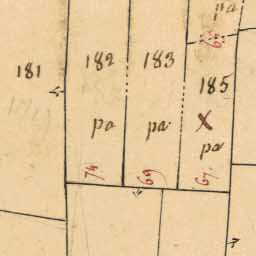 pa
181
182
183
185
X
pa
pa
pa
74
69
67